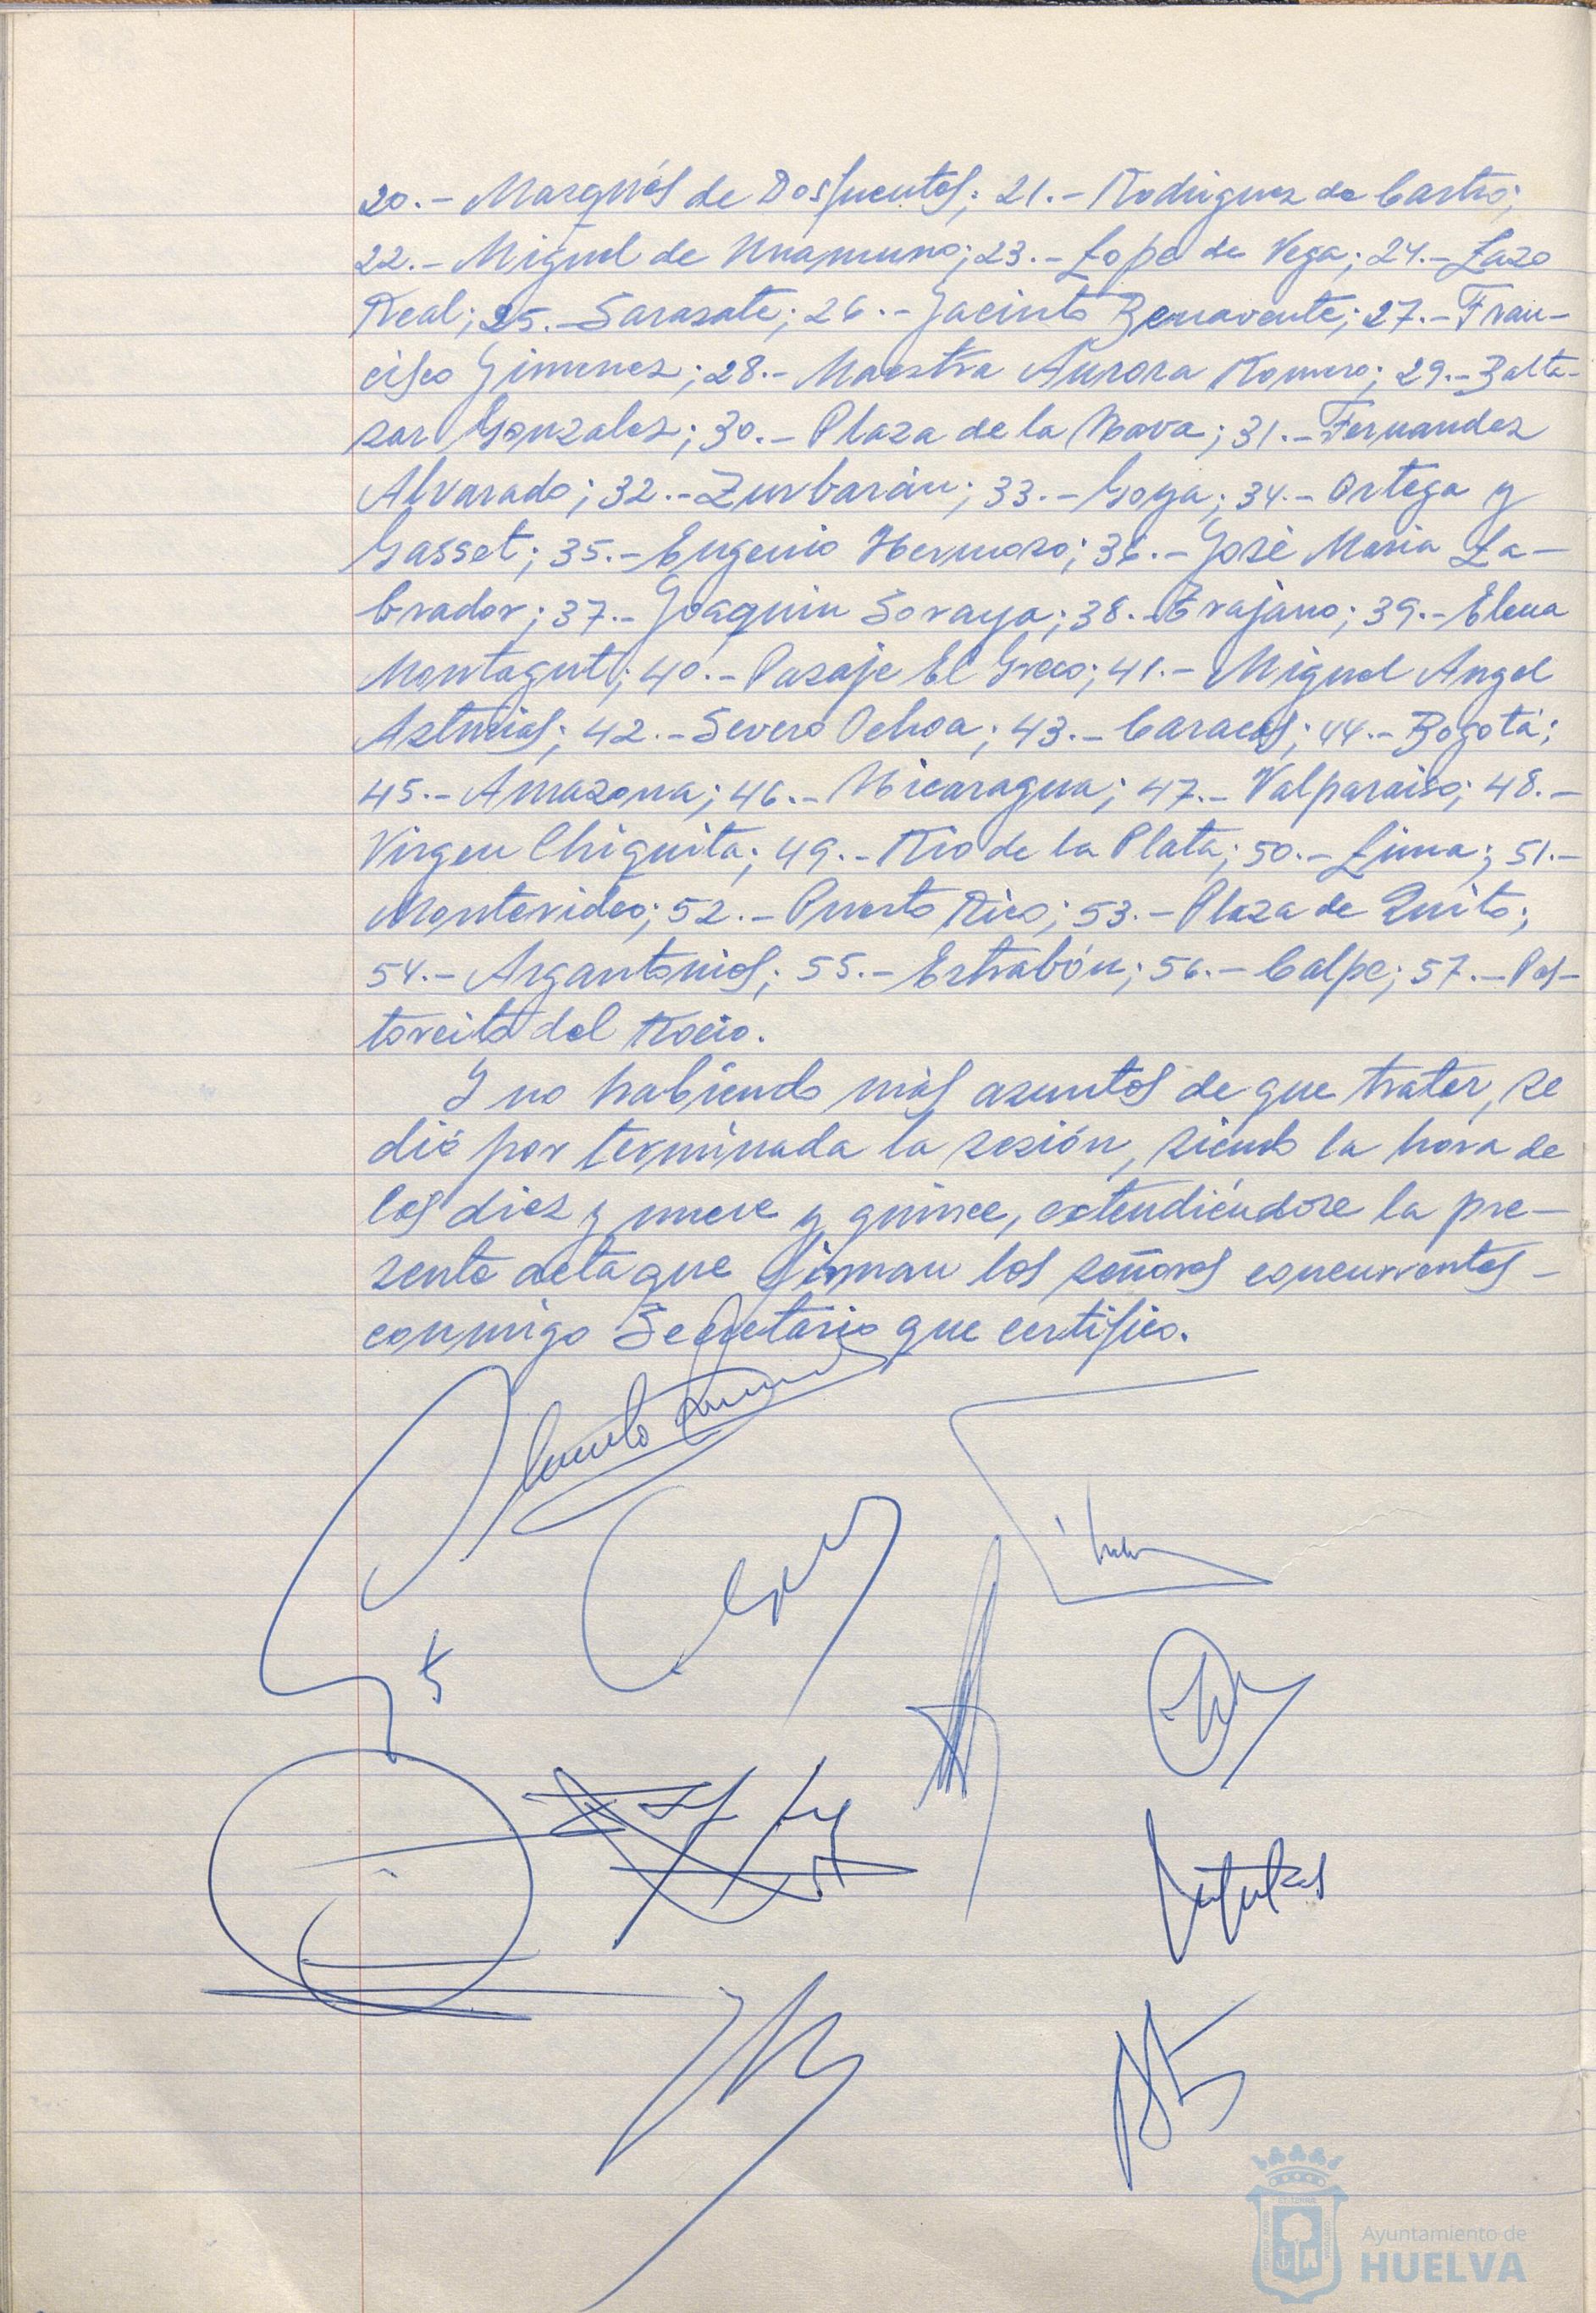 20.- Marqués de Dosfuentes; 21.- Rodriguez de Castro;
22.- Miguel de Unamuno; 23.- Lope de Vega; 24.- Lazo
Real; 25.- Sarasate; 26.- Jacinto Benavente; 27.- Fran-
cisco Gimenez; 28.- Maestra Aurora Romero; 29.- Balta-
sar Gonzalez; 30.- Plaza de la Nava; 31.- Fernandez
Alvarado; 32.- Zurbarán; 33.- Goya; 34.- Ortega y
Gasset; 35.- Eugenio Hermoso; 36.- José Maria La-
brador; 37.- Joaquin Soraya; 38.- Trajano; 39.- Elena
Montagut; 40.- Pasaje El Greco; 41.- Miguel Angel
Asturias; 42.- Severo Ochoa; 43.- Caracas; 44.- Bogotá;
45.- Amazona; 46.- Nicaragua; 47.- Valparaiso; 48.-
Virgen Chiquita; 49.- Rio de la Plata; 50.- Lima; 51.-
Montevideo; 52.- Puerto Rico; 53.- Plaza de Quito;
54.- Argantonios; 55.- Estrabón; 56.- Calpe; 57.- Pas-
torcito del Rocio.
Y no habiendo más asuntos de que tratar, se
dió por terminada la sesión, siendo la hora de
las diez y nueve y quince, extendiéndose la pre-
sente acta que firman los señores concurrentes -
conmigo Secretario que certifico.
Ayuntamiento de
HUELVA